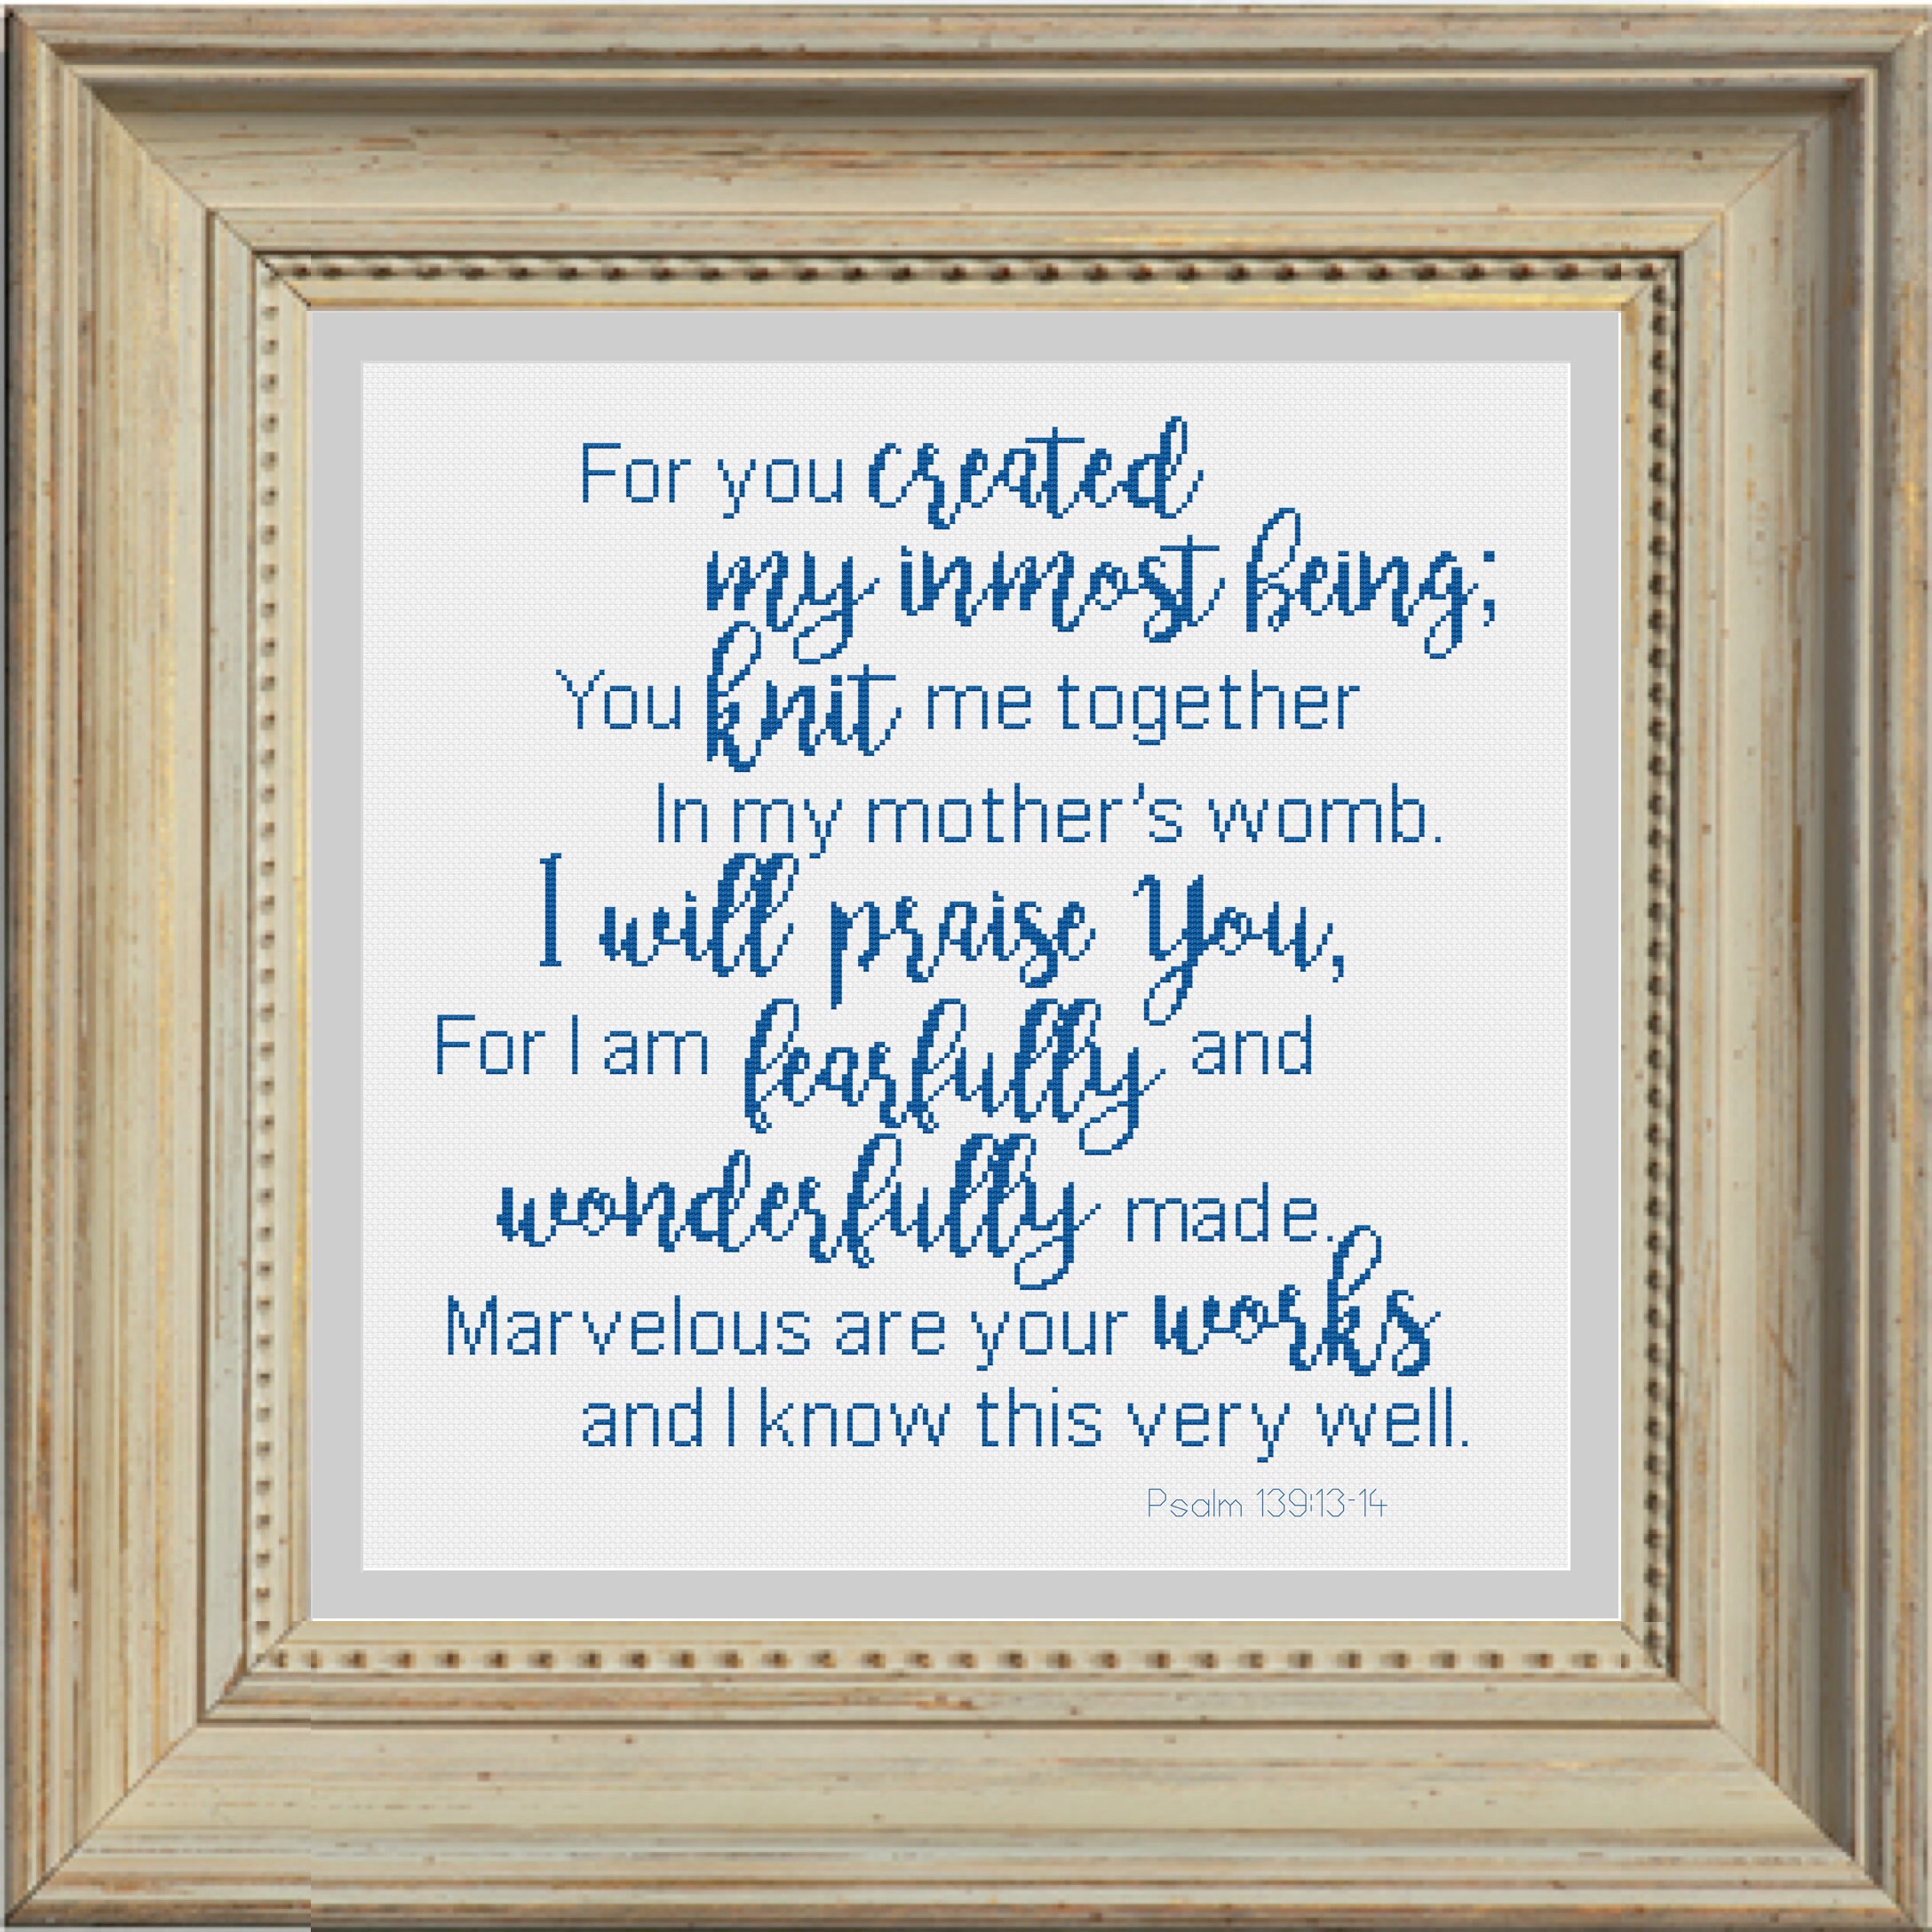 For you created
my inmost being;
You knit me together
In my mother's womb.
I will praise You,
For I am fearfully and
wonderfully made.
Marvelous are your works
and I know this very well.
Psalm 139:13-14